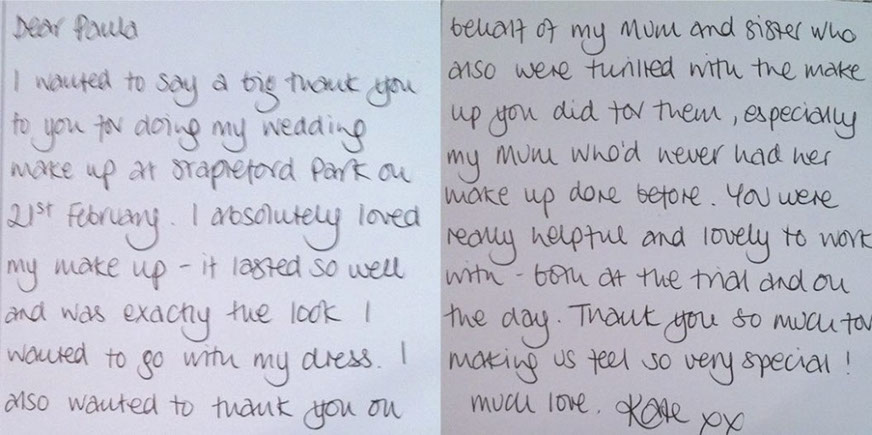 Dear Paula
I wanted to say a big thank you
to you for doing my wedding
make up at Stapleford Park on
21st February. I absolutely loved
my make up - it lasted so well
and was exactly the look I
wanted to go with my dress. I
also wanted to thank you on
behalf of my Mum and sister who
also were thrilled with the make
up you did for them, especially
my Mum who'd never had her
make up done before. You were
really helpful and lovely to work
with - both at the trial and on
the day. Thank you so much for
making us feel so very special!
much love. Kate xx